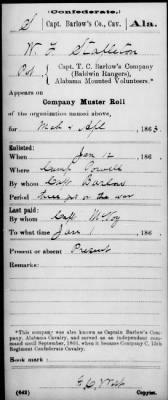 (Confederate.)
S Capt. Barlow's Co., Cav., Ala.
W. F. Stableton
Pvt, Capt. T. C. Barlow's Company
(Baldwin Rangers),
Alabama Mounted Volunteers.*
Appears on
Company Muster Roll
of the organization named above,
for Mch & Apl, 1863.
Enlisted:
When Jan 12, 186
Where Camp Powell
By whom Capt Barlow
Period three yrs or the war
Last paid:
By whom Capt McVoy
To what time Jan 1, 186
Present or absent Present
Remarks:
*This company was also known as Captain Barlow's Company, Alabama Cavalry, and served as an independent command until September, 1864, when it became Company C, 15th Regiment Confederate Cavalry.
Book mark:
(642) Copyist.